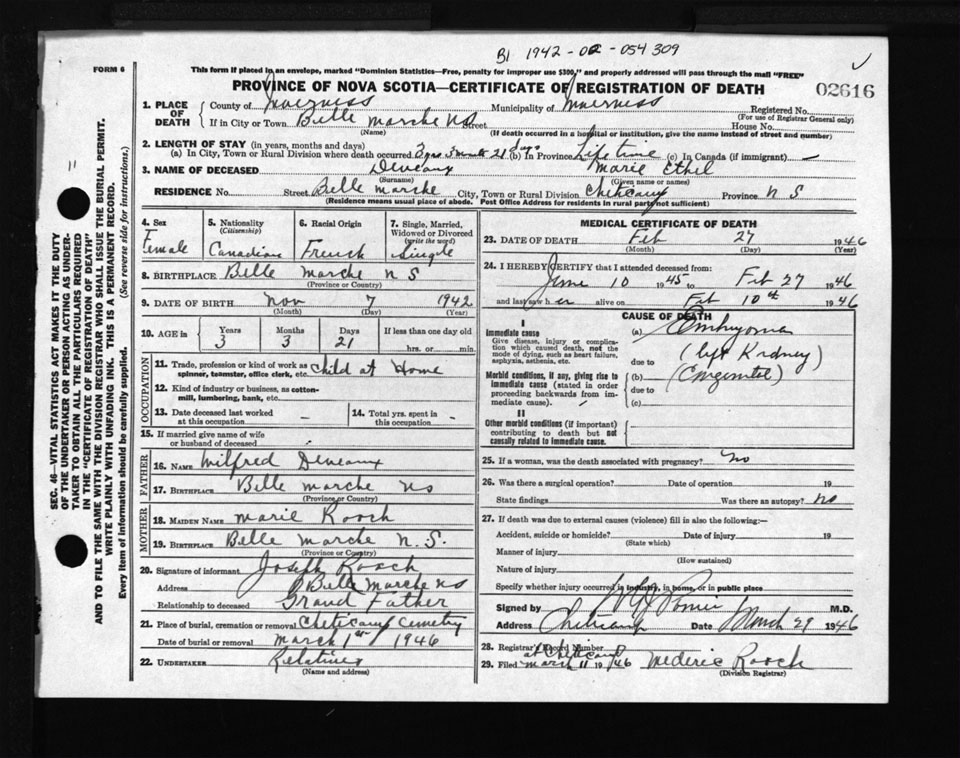 B1 1942-02-054309
FORM 6
This form if placed in an envelope, marked "Dominion Statistics—Free, penalty for improper use $300," and properly addressed will pass through the mail "FREE"
PROVINCE OF NOVA SCOTIA—CERTIFICATE OF REGISTRATION OF DEATH
02616
1. PLACE OF DEATH County of Inverness Municipality of Inverness Registered No.
(For use of Registrar General only)
If in City or Town Belle Marche NS Street House No.
(Name) (If death occurred in a hospital or institution, give the name instead of street and number)
2. LENGTH OF STAY (in years, months and days)
(a) In City, Town or Rural Division where death occurred 3 yrs 3 mnts 21 days (b) In Province Life time (c) In Canada (if immigrant) —
3. NAME OF DECEASED Deveaux Marie Ethel
(Surname) (Given name or names)
RESIDENCE No. Street Belle Marche City, Town or Rural Division Cheticamp Province N S
(Residence means usual place of abode. Post Office Address for residents in rural parts not sufficient)
4. Sex
Female
5. Nationality
(Citizenship)
Canadian
6. Racial Origin
French
7. Single, Married, Widowed or Divorced
(write the word)
Single
8. BIRTHPLACE Belle Marche N S
(Province or Country)
9. DATE OF BIRTH Nov 7 1942
(Month) (Day) (Year)
10. AGE in Years Months Days If less than one day old
3 3 21 hrs. or min.
OCCUPATION
11. Trade, profession or kind of work as spinner, teamster, office clerk, etc. Child at Home
12. Kind of industry or business, as cotton-mill, lumbering, bank, etc.
13. Date deceased last worked at this occupation —
14. Total yrs. spent in this occupation —
15. If married give name of wife or husband of deceased
FATHER
16. NAME Wilfred Deveaux
17. BIRTHPLACE Belle Marche NS
(Province or Country)
MOTHER
18. MAIDEN NAME Marie Roach
19. BIRTHPLACE Belle Marche N.S.
(Province or Country)
20. Signature of informant Joseph Roach
Address Belle Marche NS
Relationship to deceased Grand Father
21. Place of burial, cremation or removal Cheticamp Cemetry
Date of burial or removal March 1st 1946
22. UNDERTAKER Relatives
(Name and address)
MEDICAL CERTIFICATE OF DEATH
23. DATE OF DEATH Feb 27 1946
(Month) (Day) (Year)
24. I HEREBY CERTIFY that I attended deceased from:
June 10 1945 to Feb 27 1946
and last saw her alive on Feb 10th 1946
CAUSE OF DEATH
I
Immediate cause
Give disease, injury or complication which caused death, not the mode of dying, such as heart failure, asphyxia, asthenia, etc.
(a) Embryoma
due to (left Kidney)
Morbid conditions, if any, giving rise to immediate cause (stated in order proceeding backwards from immediate cause).
(b) (Congenital)
due to
(c)
II
Other morbid conditions (if important) contributing to death but not causally related to immediate cause.
25. If a woman, was the death associated with pregnancy? No
26. Was there a surgical operation? Date of operation 19
State findings Was there an autopsy? No
27. If death was due to external causes (violence) fill in also the following:—
Accident, suicide or homicide? Date of injury 19
(State which)
Manner of injury
(How sustained)
Nature of injury
Specify whether injury occurred in industry, in home, or in public place
Signed by M.D.
Address Cheticamp Date March 29 1946
28. Registrar's Record Number
at Cheticamp
29. Filed March 11 1946 Mederic Roach
(Division Registrar)
SEC. 46—VITAL STATISTICS ACT MAKES IT THE DUTY
OF THE UNDERTAKER OR PERSON ACTING AS UNDER-
TAKER TO OBTAIN ALL THE PARTICULARS REQUIRED
IN THE "CERTIFICATE OF REGISTRATION OF DEATH"
AND TO FILE THE SAME WITH THE DIVISION REGISTRAR WHO SHALL ISSUE THE BURIAL PERMIT.
WRITE PLAINLY WITH UNFADING INK. THIS IS A PERMANENT RECORD.
Every item of information should be carefully supplied. (See reverse side for instructions.)